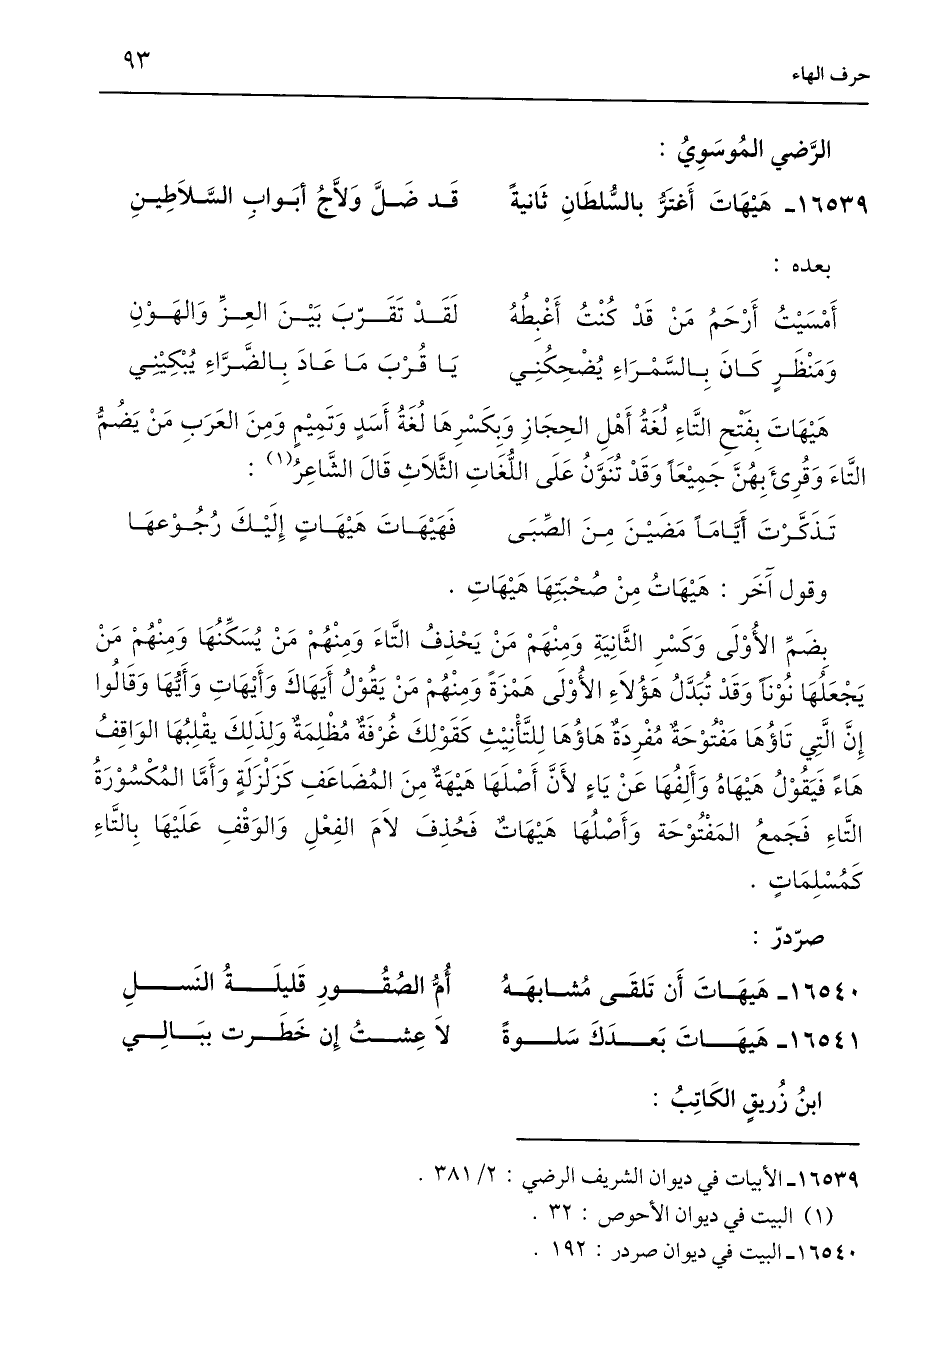 حرف الهاء ٩٣
الرَّضي المُوسَوِيُ :
١٦٥٣٩ـ هَيْهَاتَ أَغتَرُّ بالسُّلطَانِ ثَانيةً قَـد ضَـلَّ وَلاَّجُ أبَـوابِ السَّـلاَطِيـنِ
بعده :
أَمْسَيْتُ أَرْحَمُ مَنْ قَدْ كُنْتُ أَغْبِطُهُ لَقَـدْ تَقَـرّبَ بَيْـنَ العِـزِّ وَالهَـوْنِ
وَمَنْظَرٍ كَـانَ بِـالسَّمْـرَاءِ يُضْحِكُنِـي يَـا قُـرْبَ مَـا عَـادَ بِـالضَّـرَّاءِ يُبْكِيْنِـي
هَيْهَاتَ بِفَتْحِ التَّاءِ لُغَةُ أَهْلِ الحِجَازِ وَبِكَسْرِهَا لُغَةُ أَسَدٍ وَتَمِيْمٍ وَمِنَ العَرَبِ مَنْ يَضُمُّ
التَّاءَ وَقُرِئَ بِهُنَّ جَمِيْعَاً وَقَدْ تُنَوَّنُ عَلَى اللُّغَاتِ الثَّلاَثِ قَالَ الشَّاعِرُ(١) :
تَـذَكَّـرْتَ أَيَّـامَـاً مَضَيْـنَ مِـنَ الصِّبَـى فَهَيْهَـاتَ هَيْهَـاتٍ إِلَيْـكَ رُجُـوْعهَـا
وقول آخَر : هَيْهَاتُ مِنْ صُحْبَتِهَا هَيْهَاتِ .
بِضَمِّ الأُوْلَى وَكَسْرِ الثَّانِيَةِ وَمِنْهَم مَنْ يَحْذِفُ التَّاءَ وَمِنْهُمْ مَنْ يُسَكِّنُهَا وَمِنْهُمْ مَنْ
يَجْعَلُهَا نُوْنَاً وَقَدْ تُبَدَّلُ هَؤُلاَءِ الأُوْلَى هَمْزَةً وَمِنْهُمْ مَنْ يَقُوْلُ أَيَهَاكَ وَأَيْهَاتِ وَأَيُّهَا وَقَالُوا
إِنَّ الَّتِي تَاؤُهَا مَفْتُوْحَةٌ مُفْرِدَةٌ هَاؤُهَا لِلتَّأْنِيْثِ كَقَوْلِكَ غُرْفَةٌ مُظْلِمَةٌ وَلِذَلِكَ يقْلِبُهَا الوَاقِفُ
هَاءً فَيَقُوْلُ هَيْهَاهُ وَأَلِفُهَا عَنْ يَاءٍ لأَنَّ أَصْلَهَا هَيْهَةٌ مِنَ المُضَاعَفِ كَزَلْزَلَةٍ وَأَمَّا المُكْسُوْرَةُ
التَّاءِ فَجَمعُ المَفْتُوْحَة وَأَصْلُهَا هَيْهَاتٌ فَحُذِفَ لاَمَ الفِعْلِ وَالوَقْف عَلَيْهَا بِالتَّاءِ
كَمُسْلِمَاتٍ .
صرّدرّ :
١٦٥٤٠ـ هَيهَـاتَ أَن تَلقَـى مُشـابهَـهُ أُمُّ الصُقُـــورِ قَليلَـــةُ النَســـلِ
١٦٥٤١ـ هَيهَـــاتَ بَعـــدَكَ سَلـــوةً لاَ عِشـــتُ إِن خَطَـرت ببَـــالِـــي
ابنُ زُريقٍ الكَاتِبُ :
١٦٥٣٩ـ الأبيات في ديوان الشريف الرضي : ٢/ ٣٨١ .
(١) البيت في ديوان الأحوص : ٣٢ .
١٦٥٤٠ـ البيت في ديوان صردر : ١٩٢ .